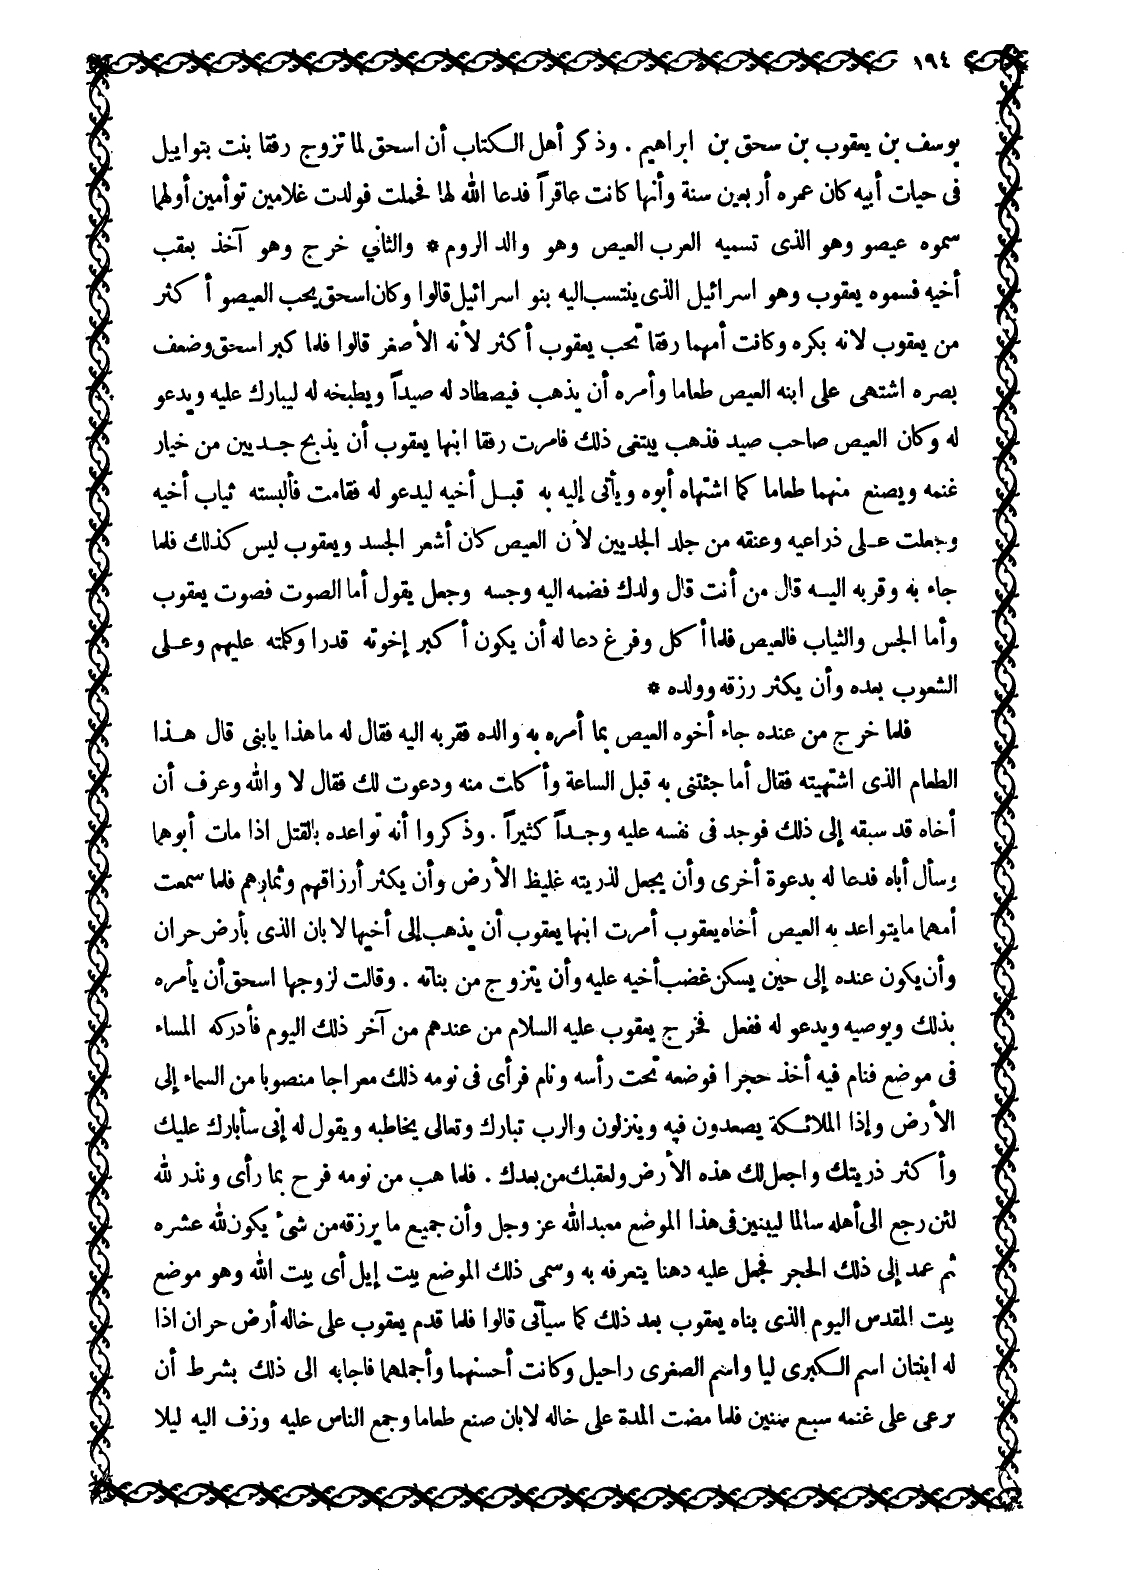 ١٩٤
يوسف بن يعقوب بن سحق بن ابراهيم . وذكر أهل الكتاب أن اسحق لما تزوج رفقا بنت بتواييل
فى حيات أبيه كان عمره أربعين سنة وأنها كانت عاقراً فدعا الله لها فحملت فولدت غلامين توأمين أولهما
سموه عيصو وهو الذى تسميه العرب العيص وهو والد الروم * والثاني خرج وهو آخذ بعقب
أخيه فسموه يعقوب وهو اسرائيل الذى ينتسب اليه بنو اسرائيل قالوا وكان اسحق يحب العيصو أكثر
من يعقوب لانه بكره وكانت أمهما رفقا تحب يعقوب أكثر لأنه الأصغر قالوا فلما كبر اسحق وضعف
بصره اشتهى على ابنه العيص طعاما وأمره أن يذهب فيصطاد له صيداً ويطبخه له ليبارك عليه ويدعو
له وكان العيص صاحب صيد فذهب يبتغى ذلك فامرت رفقا ابنها يعقوب أن يذبح جديين من خيار
غنمه ويصنع منهما طعاما كما اشتهاه أبوه ويأتى إليه به قبل أخيه ليدعو له فقامت فألبسته ثياب أخيه
وجعلت على ذراعيه وعنقه من جلد الجديين لأن العيص كان أشعر الجسد ويعقوب ليس كذلك فلما
جاء به وقربه اليه قال من أنت قال ولدك فضمه اليه وجسه وجعل يقول أما الصوت فصوت يعقوب
وأما الجس والثياب فالعيص فلما أكل وفرغ دعا له أن يكون أكبر إخوته قدرا وكلمته عليهم وعلى
الشعوب بعده وأن يكثر رزقه وولده *
فلما خرج من عنده جاء أخوه العيص بما أمره به والده فقربه اليه فقال له ماهذا يابنى قال هذا
الطعام الذى اشتهيته فقال أما جئتنى به قبل الساعة وأكلت منه ودعوت لك فقال لا والله وعرف أن
أخاه قد سبقه إلى ذلك فوجد فى نفسه عليه وجداً كثيراً . وذكروا أنه تواعده بالقتل اذا مات أبوهما
وسأل أباه فدعا له بدعوة أخرى وأن يجعل لذريته غليظ الأرض وأن يكثر أرزاقهم وثمارهم فلما سمعت
أمهما مايتواعد به العيص أخاه يعقوب أمرت ابنها يعقوب أن يذهب إلى أخيها لابان الذى بأرض حران
وأن يكون عنده إلى حين يسكن غضب أخيه عليه وأن يتزوج من بناته . وقالت لزوجها اسحق أن يأمره
بذلك ويوصيه ويدعو له ففعل فخرج يعقوب عليه السلام من عندهم من آخر ذلك اليوم فأدركه المساء
فى موضع فنام فيه أخذ حجرا فوضعه تحت رأسه ونام فرأى فى نومه ذلك معراجا منصوبا من السماء إلى
الأرض وإذا الملائكة يصعدون فيه وينزلون والرب تبارك وتعالى يخاطبه ويقول له إنى سأبارك عليك
وأكثر ذريتك واجعل لك هذه الأرض ولعقبك من بعدك . فلما هب من نومه فرح بما رأى ونذر لله
لئن رجع الى أهله سالما ليبنين فى هذا الموضع معبدالله عز وجل وأن جميع ما يرزقه من شىء يكون لله عشره
ثم عمد إلى ذلك الحجر فجعل عليه دهنا يتعرفه به وسمى ذلك الموضع بيت إيل أى بيت الله وهو موضع
بيت المقدس اليوم الذى بناه يعقوب بعد ذلك كما سيأتى قالوا فلما قدم يعقوب على خاله أرض حران اذا
له ابنتان اسم الكبرى ليا واسم الصغرى راحيل وكانت أحسنهما وأجملهما فاجابه الى ذلك بشرط أن
يرعى على غنمه سبع سنين فلما مضت المدة على خاله لابان صنع طعاما وجمع الناس عليه وزف اليه ليلا